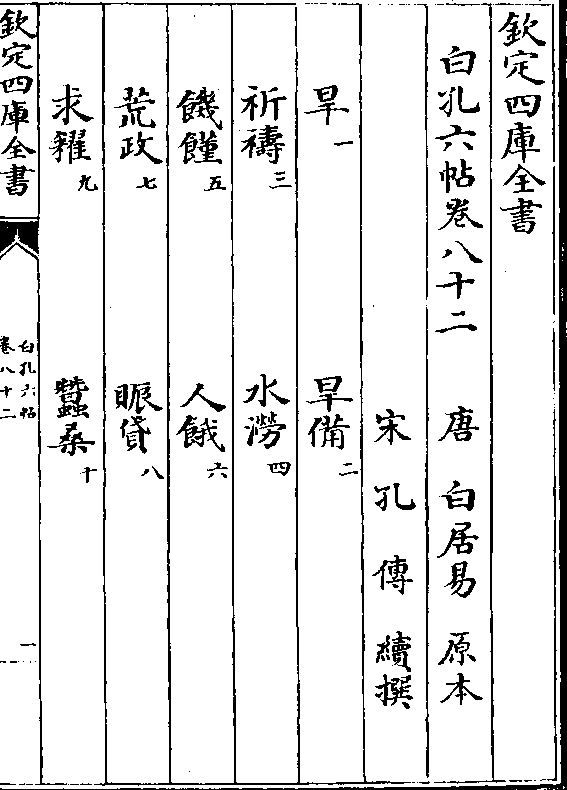 欽定四庫全書
白孔六帖卷八十二　唐　白居易　原本
宋　孔　傳　續撰
旱一　旱備二
祈禱三　水澇四
饑饉五　人餓六
荒政七　賑貸八
求糴九　蠶桑十
欽定四庫全書
白孔六帖
卷八十二
一